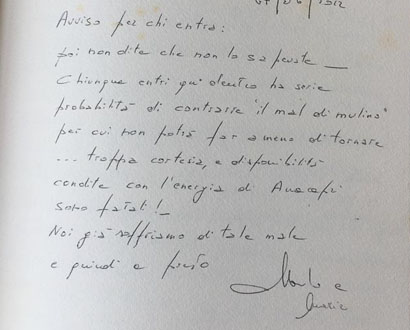 Avviso per chi entra:
poi non dite che non lo sapevate _
Chiunque entri qua dentro ha serie
probabilità di contrarre "il mal di mulino"
per cui non potrà far a meno di tornare
... troppa cortesia, e disponibilità
condite con l'energia di Anacapri
sono fatali!_
Noi già soffriamo di tale male
e quindi a presto
e